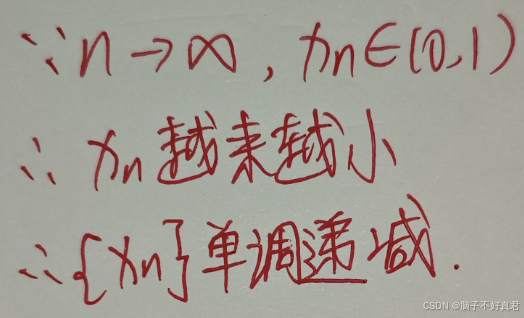 ∵n→∞, xn∈(0,1)
∴ xn越来越小
∴{xn}单调递减.
CSDN @脑子不好真君